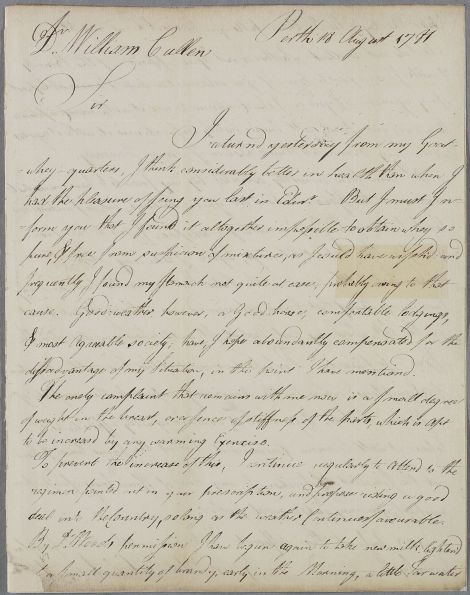 Dr. William Cullen Perth 18 August 1781
Sir
I returnd yesterday from my Goat-
-whey-quarters, I think considerably better in health than when I
had the pleasure of seing you last in Edinr. But I must In-
-form you that I found it altogether impossible to obtain whey so
pure, & free from suspicion of mixtures, as I could have wished and
frequently I found my stomach not quite at ease, probably owing to that
cause. Good weather however, a Good horse, comfortable lodgings,
& most agreable society, have, I hope abundantly compensated for the
dissadvantage of my situation, in the point I have mentioned.
The onely complaint that remains with me now is a small degree
of weight in the breast, or a sense of stiffness of the parts, which is apt
to be increasd by any warming Exercise.
To prevent the increase of this, I continue regularly to attend to the
regimen pointed out in your prescription, and propose riding a good
deal in the Country, so long as the weather Continues favourable.
By Dr. Woods permission I have begun again to take new milk
a small quantity of brandy, early in the Morning, a little warm water